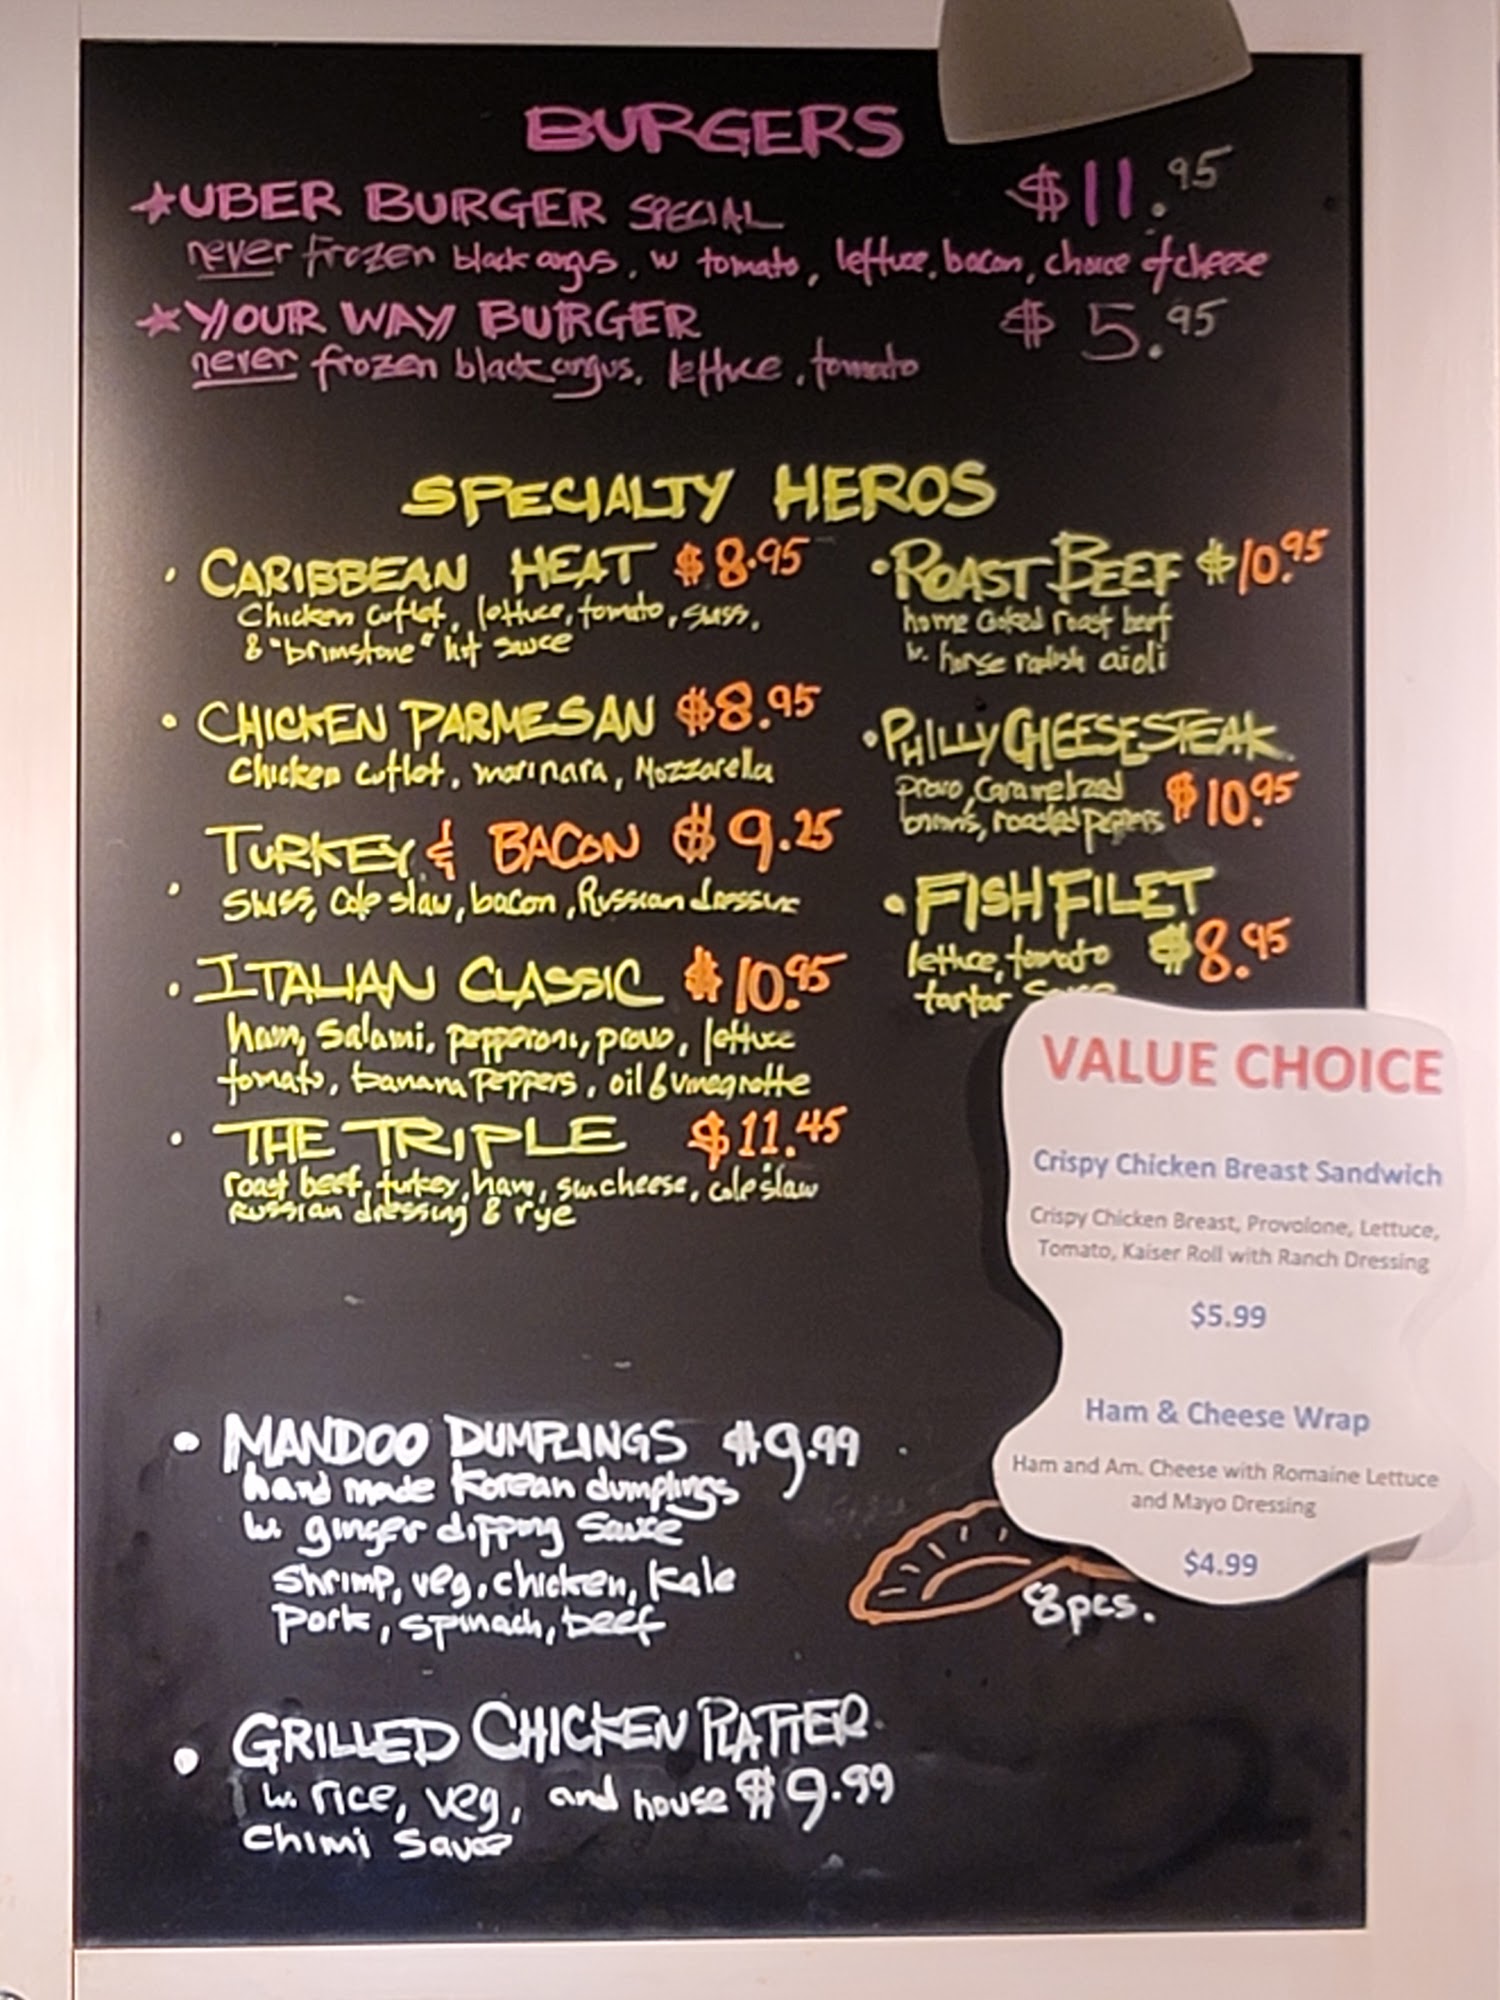 BURGERS
★UBER BURGER SPECIAL $11.95
never frozen black angus, w tomato, lettuce, bacon, choice of cheese
★YOUR WAY BURGER $5.95
never frozen black angus, lettuce, tomato
SPECIALTY HEROS
• CARIBBEAN HEAT $8.95
Chicken cutlet, lettuce, tomato, swiss,
& "brimstone" hot sauce
• CHICKEN PARMESAN $8.95
Chicken cutlet, marinara, Mozzarella
TURKEY & BACON $9.25
• swiss, cole slaw, bacon, Russian dressing
• ITALIAN CLASSIC $10.95
ham, salami, pepperoni, provo, lettuce
tomato, banana peppers, oil & vinegrette
• THE TRIPLE $11.45
roast beef, turkey, ham, swcheese, cole slaw
Russian dressing & rye
• ROAST BEEF $10.95
home cooked roast beef
w. horse radish aioli
• PHILLY CHEESESTEAK
provo, caramelized $10.95
onions, roasted peppers
• FISH FILET
lettuce, tomato $8.95
tartar sauce
VALUE CHOICE
Crispy Chicken Breast Sandwich
Crispy Chicken Breast, Provolone, Lettuce,
Tomato, Kaiser Roll with Ranch Dressing
$5.99
Ham & Cheese Wrap
Ham and Am. Cheese with Romaine Lettuce
and Mayo Dressing
$4.99
• MANDOO DUMPLINGS $9.99
hand made Korean dumplings
w. ginger dipping sauce
Shrimp, veg, chicken, kale
Pork, spinach, beef
8pcs.
• GRILLED CHICKEN PLATTER
w. rice, veg, and house $9.99
Chimi Sauce